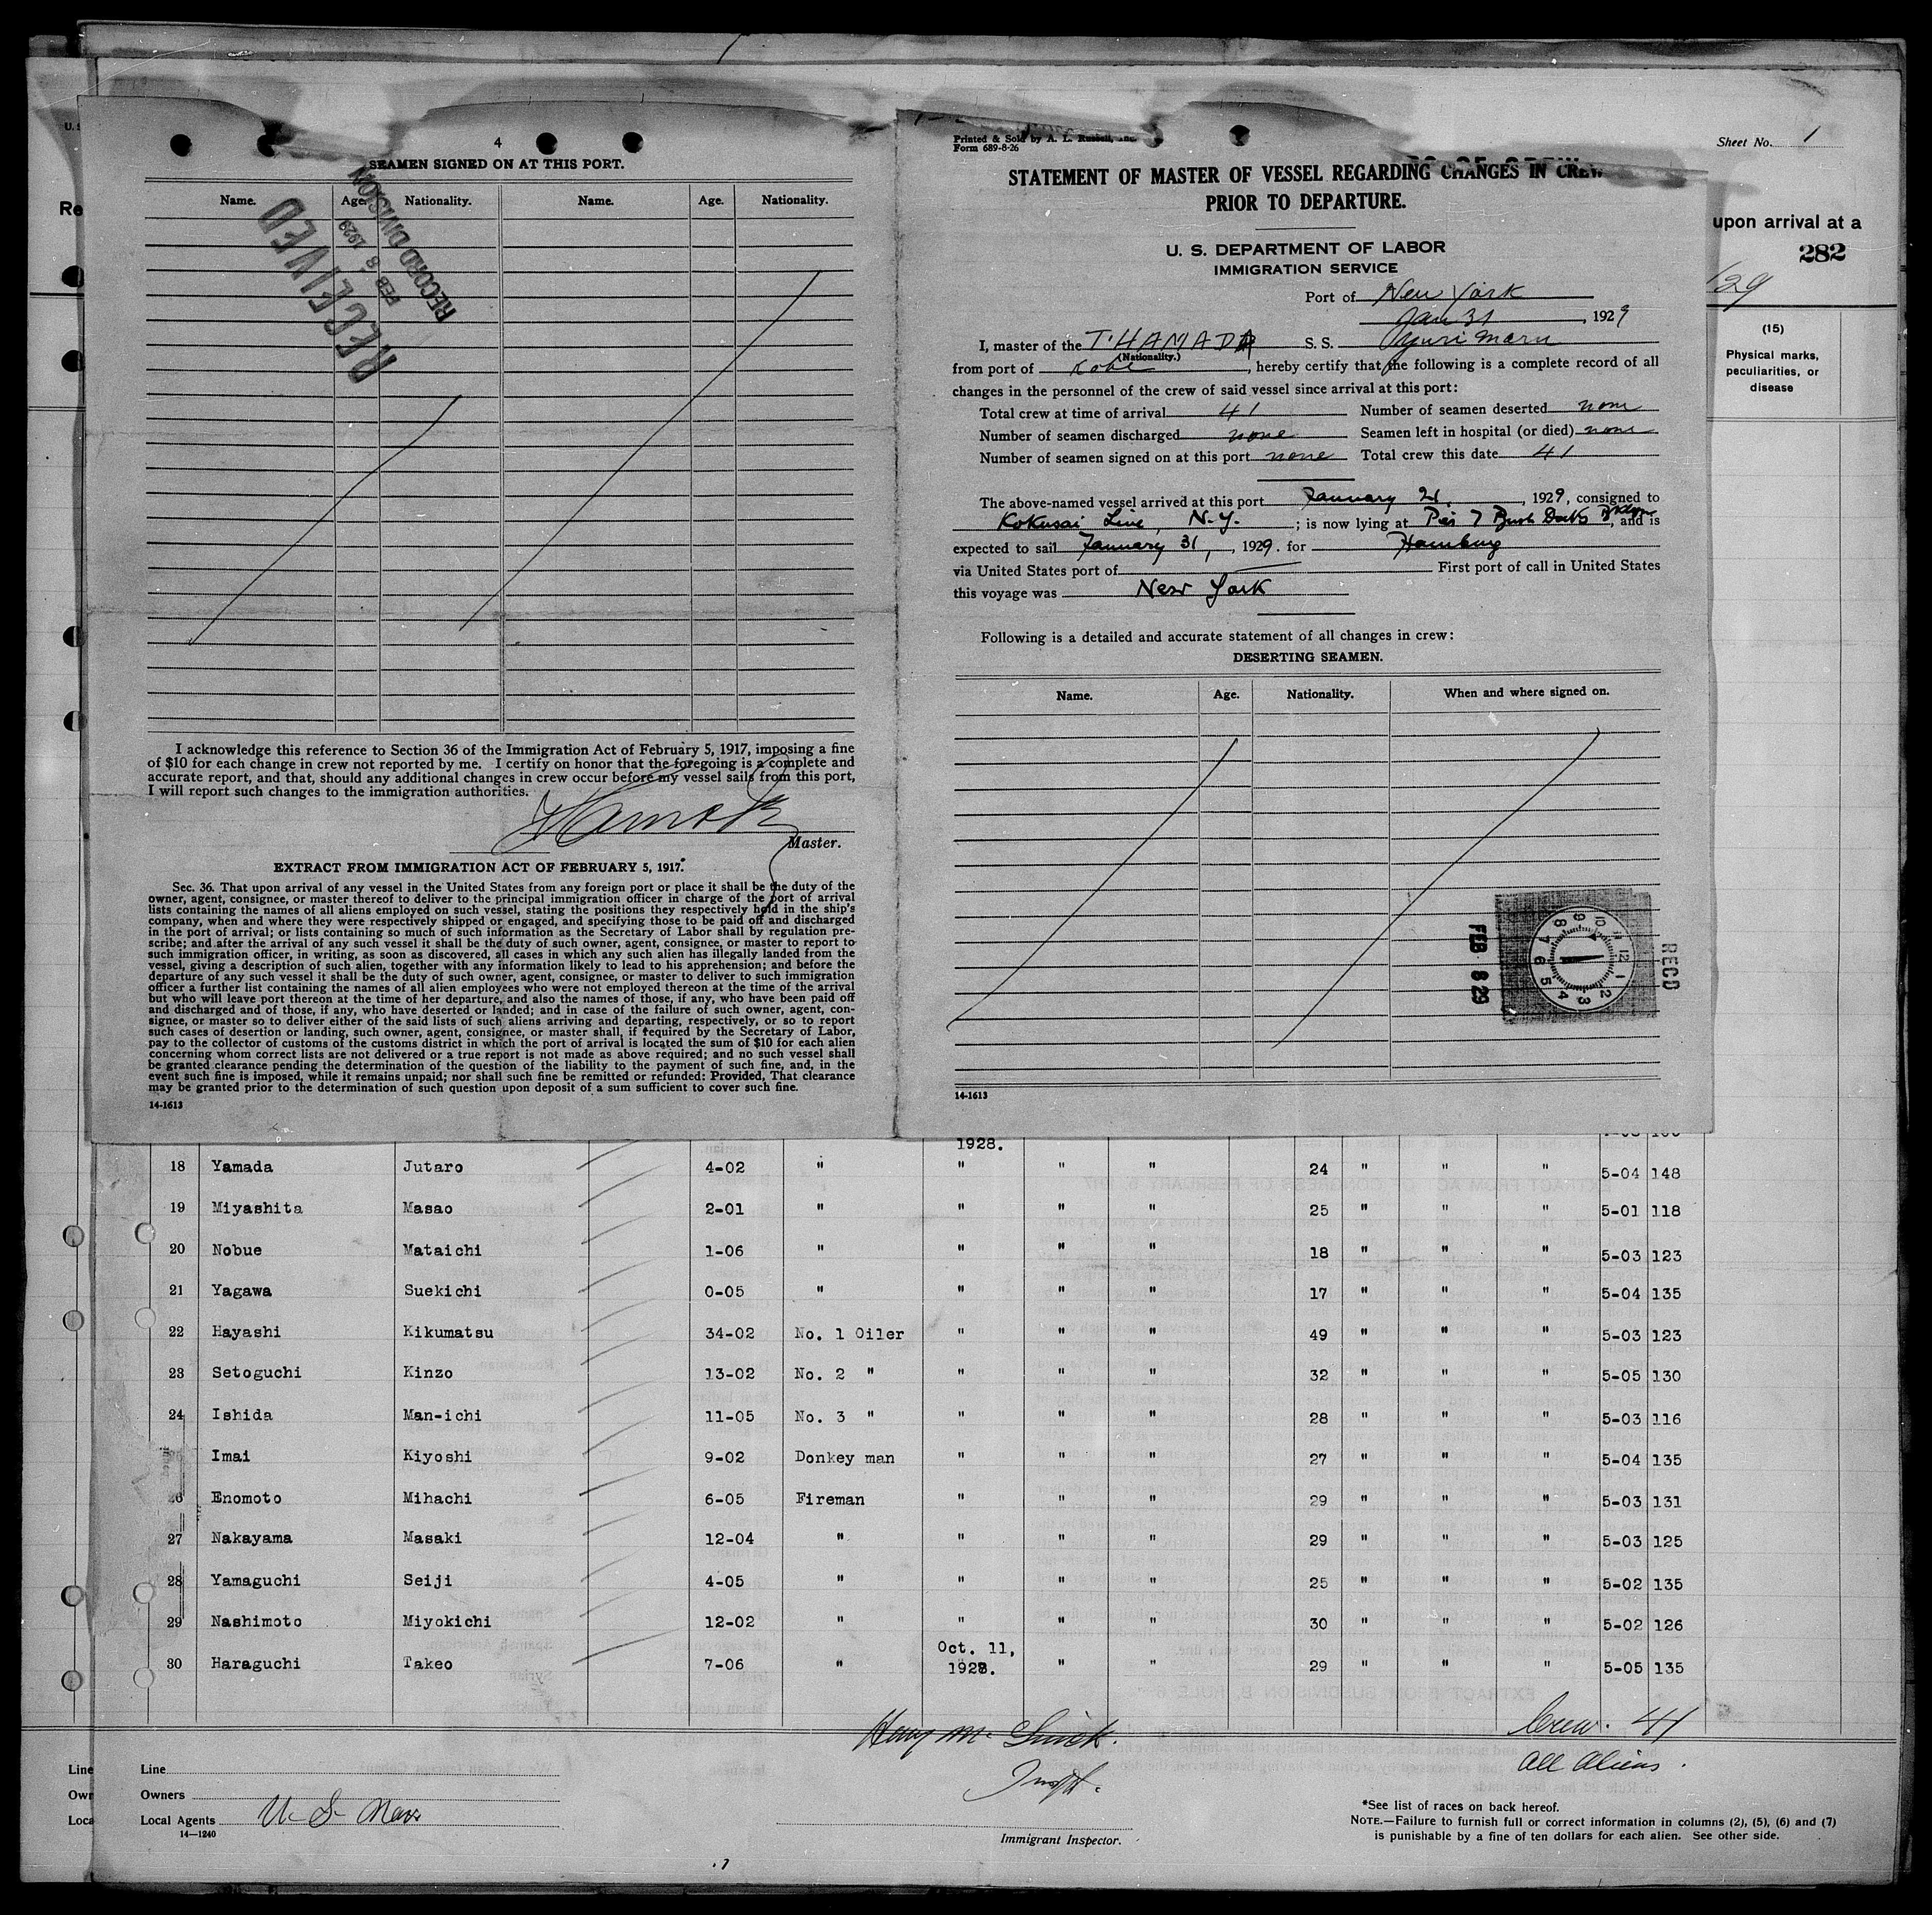 4
SEAMEN SIGNED ON AT THIS PORT.
Name. Age. Nationality. Name. Age. Nationality.
RECEIVED
FEB 8 1929
RECORD DIVISION
I acknowledge this reference to Section 36 of the Immigration Act of February 5, 1917, imposing a fine
of $10 for each change in crew not reported by me. I certify on honor that the foregoing is a complete and
accurate report, and that, should any additional changes in crew occur before my vessel sails from this port,
I will report such changes to the immigration authorities.
Master.
EXTRACT FROM IMMIGRATION ACT OF FEBRUARY 5, 1917.
Sec. 36. That upon arrival of any vessel in the United States from any foreign port or place it shall be the duty of the
owner, agent, consignee, or master thereof to deliver to the principal immigration officer in charge of the port of arrival
lists containing the names of all aliens employed on such vessel, stating the positions they respectively hold in the ship's
company, when and where they were respectively shipped or engaged, and specifying those to be paid off and discharged
in the port of arrival; or lists containing so much of such information as the Secretary of Labor shall by regulation pre-
scribe; and after the arrival of any such vessel it shall be the duty of such owner, agent, consignee, or master to report to
such immigration officer, in writing, as soon as discovered, all cases in which any such alien has illegally landed from the
vessel, giving a description of such alien, together with any information likely to lead to his apprehension; and before the
departure of any such vessel it shall be the duty of such owner, agent, consignee, or master to deliver to such immigration
officer a further list containing the names of all alien employees who were not employed thereon at the time of the arrival
but who will leave port thereon at the time of her departure, and also the names of those, if any, who have been paid off
and discharged and of those, if any, who have deserted or landed; and in case of the failure of such owner, agent, con-
signee, or master so to deliver either of the said lists of such aliens arriving and departing, respectively, or so to report
such cases of desertion or landing, such owner, agent, consignee, or master shall, if required by the Secretary of Labor,
pay to the collector of customs of the customs district in which the port of arrival is located the sum of $10 for each alien
concerning whom correct lists are not delivered or a true report is not made as above required; and no such vessel shall
be granted clearance pending the determination of the question of the liability to the payment of such fine, and, in the
event such fine is imposed, while it remains unpaid; nor shall such fine be remitted or refunded: Provided, That clearance
may be granted prior to the determination of such question upon deposit of a sum sufficient to cover such fine.
14-1613
Printed & Sold by A. L. Russell, Inc.
Form 689-8-26
STATEMENT OF MASTER OF VESSEL REGARDING CHANGES IN CREW
PRIOR TO DEPARTURE.
U. S. DEPARTMENT OF LABOR
IMMIGRATION SERVICE
Port of New York
Jan 31, 1929
I, master of the T. HAMADA S. S. Yuri Maru
(Nationality.)
from port of Kobe, hereby certify that the following is a complete record of all
changes in the personnel of the crew of said vessel since arrival at this port:
Total crew at time of arrival 41 Number of seamen deserted none
Number of seamen discharged none Seamen left in hospital (or died) none
Number of seamen signed on at this port none Total crew this date 41
The above-named vessel arrived at this port January 21, 1929, consigned to
Kokusai Line, N.Y.; is now lying at Pier 7 Bush Docks Bklyn, and is
expected to sail January 31, 1929. for Hamburg
via United States port of First port of call in United States
this voyage was New York
Following is a detailed and accurate statement of all changes in crew:
DESERTING SEAMEN.
Name. Age. Nationality. When and where signed on.
REC'D
FEB 8 29
14-1613
Sheet No. 1
upon arrival at a
282
/29
(15)
Physical marks,
peculiarities, or
disease
1928.
18 Yamada Jutaro 4-02 " " " " 24 " " " 5-04 148
19 Miyashita Masao 2-01 " " " " 25 " " " 5-01 118
20 Nobue Mataichi 1-06 " " " " 18 " " " 5-03 123
21 Yagawa Suekichi 0-05 " " " " 17 " " " 5-04 135
22 Hayashi Kikumatsu 34-02 No. 1 Oiler " " " 49 " " " 5-03 123
23 Setoguchi Kinzo 13-02 No. 2 " " " " 32 " " " 5-05 130
24 Ishida Man-ichi 11-05 No. 3 " " " " 28 " " " 5-03 116
Imai Kiyoshi 9-02 Donkey man " " " 27 " " " 5-04 135
26 Enomoto Mihachi 6-05 Fireman " " " 29 " " " 5-03 131
27 Nakayama Masaki 12-04 " " " " 29 " " " 5-03 125
28 Yamaguchi Seiji 4-05 " " " " 25 " " " 5-02 135
29 Nashimoto Miyokichi 12-02 " " " " 30 " " " 5-02 126
Oct. 11,
30 Haraguchi Takeo 7-06 " 1928. " " 29 " " " 5-05 135
Crew. 41
All Aliens.
Line
Owners
Local Agents
14—1240
Immigrant Inspector.
*See list of races on back hereof.
NOTE.—Failure to furnish full or correct information in columns (2), (5), (6) and (7)
is punishable by a fine of ten dollars for each alien. See other side.